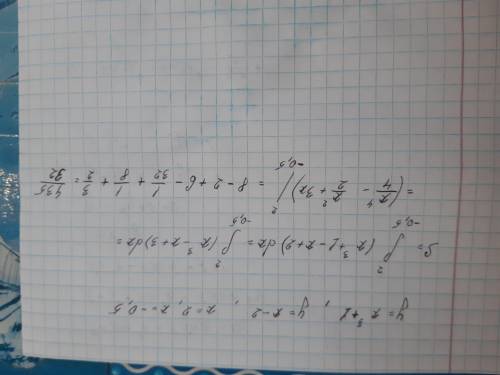 y = x³+1, y = x-2, x = 2, x = -0,5
S = ∫_{-0,5}^{2} (x³+1-x+2)dx = ∫_{-0,5}^{2} (x³-x+3)dx =
= (x⁴/4 - x²/2 + 3x) |_{-0,5}^{2} = 8-2+6 - 1/32 + 1/8 + 3/2 = 435/32